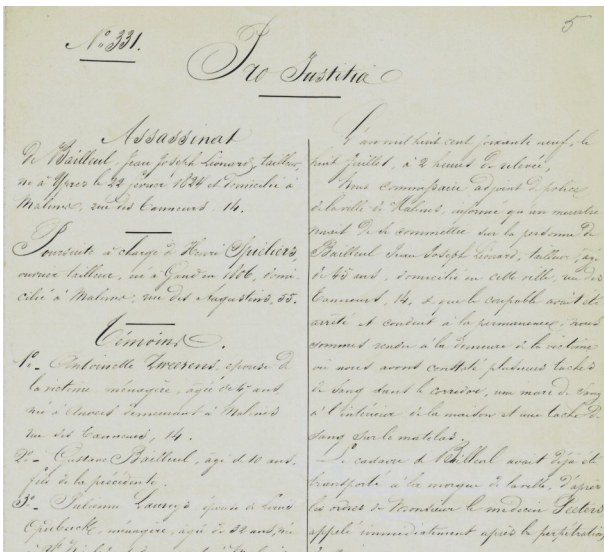 5
N° 331.
Pro Justitia
Assassinat
de Bailleul, Jean Joseph Léonard, tailleur,
né à Ypres le 22 février 1824 et domicilié à
Malines, rue des Tanneurs, 14.
Poursuite à charge de Henri
ouvrier tailleur, né à Gand en domi-
cilié à Malines, rue des Augustins, 55.
Témoins.
1°- Antoinette épouse de
la victime ménagère, âgée de 47 ans,
née à Anvers demeurant à Malines
rue des Tanneurs, 14.
2°- Gustave Bailleul, âgé de 10 ans,
fils de la précédente.
3°- Julienne épouse de
ménagère, âgée de 32 ans, née
L'an mil huit cent soixante neuf, le
huit juillet, à 2 heures de relevée,
Nous commissaire adjoint de police
de la ville de Malines, informé qu'un meurtre
venait de se commettre sur la personne de
Bailleul Jean Joseph Léonard, tailleur, âgé
de 45 ans, domicilié en cette ville, rue des
Tanneurs, 14, & que le coupable avait été
arrêté et conduit à la permanence, nous
sommes rendu à la demeure de la victime
où nous avons constaté plusieurs taches
de sang dans le corridor, une mare de sang
à l'intérieur de la maison et une tache de
sang sur le matelas.
Le cadavre de Bailleul avait déjà été
transporté à la morgue de la ville, d'après
les ordres de Monsieur le médecin
appelé immédiatement après la perpétration